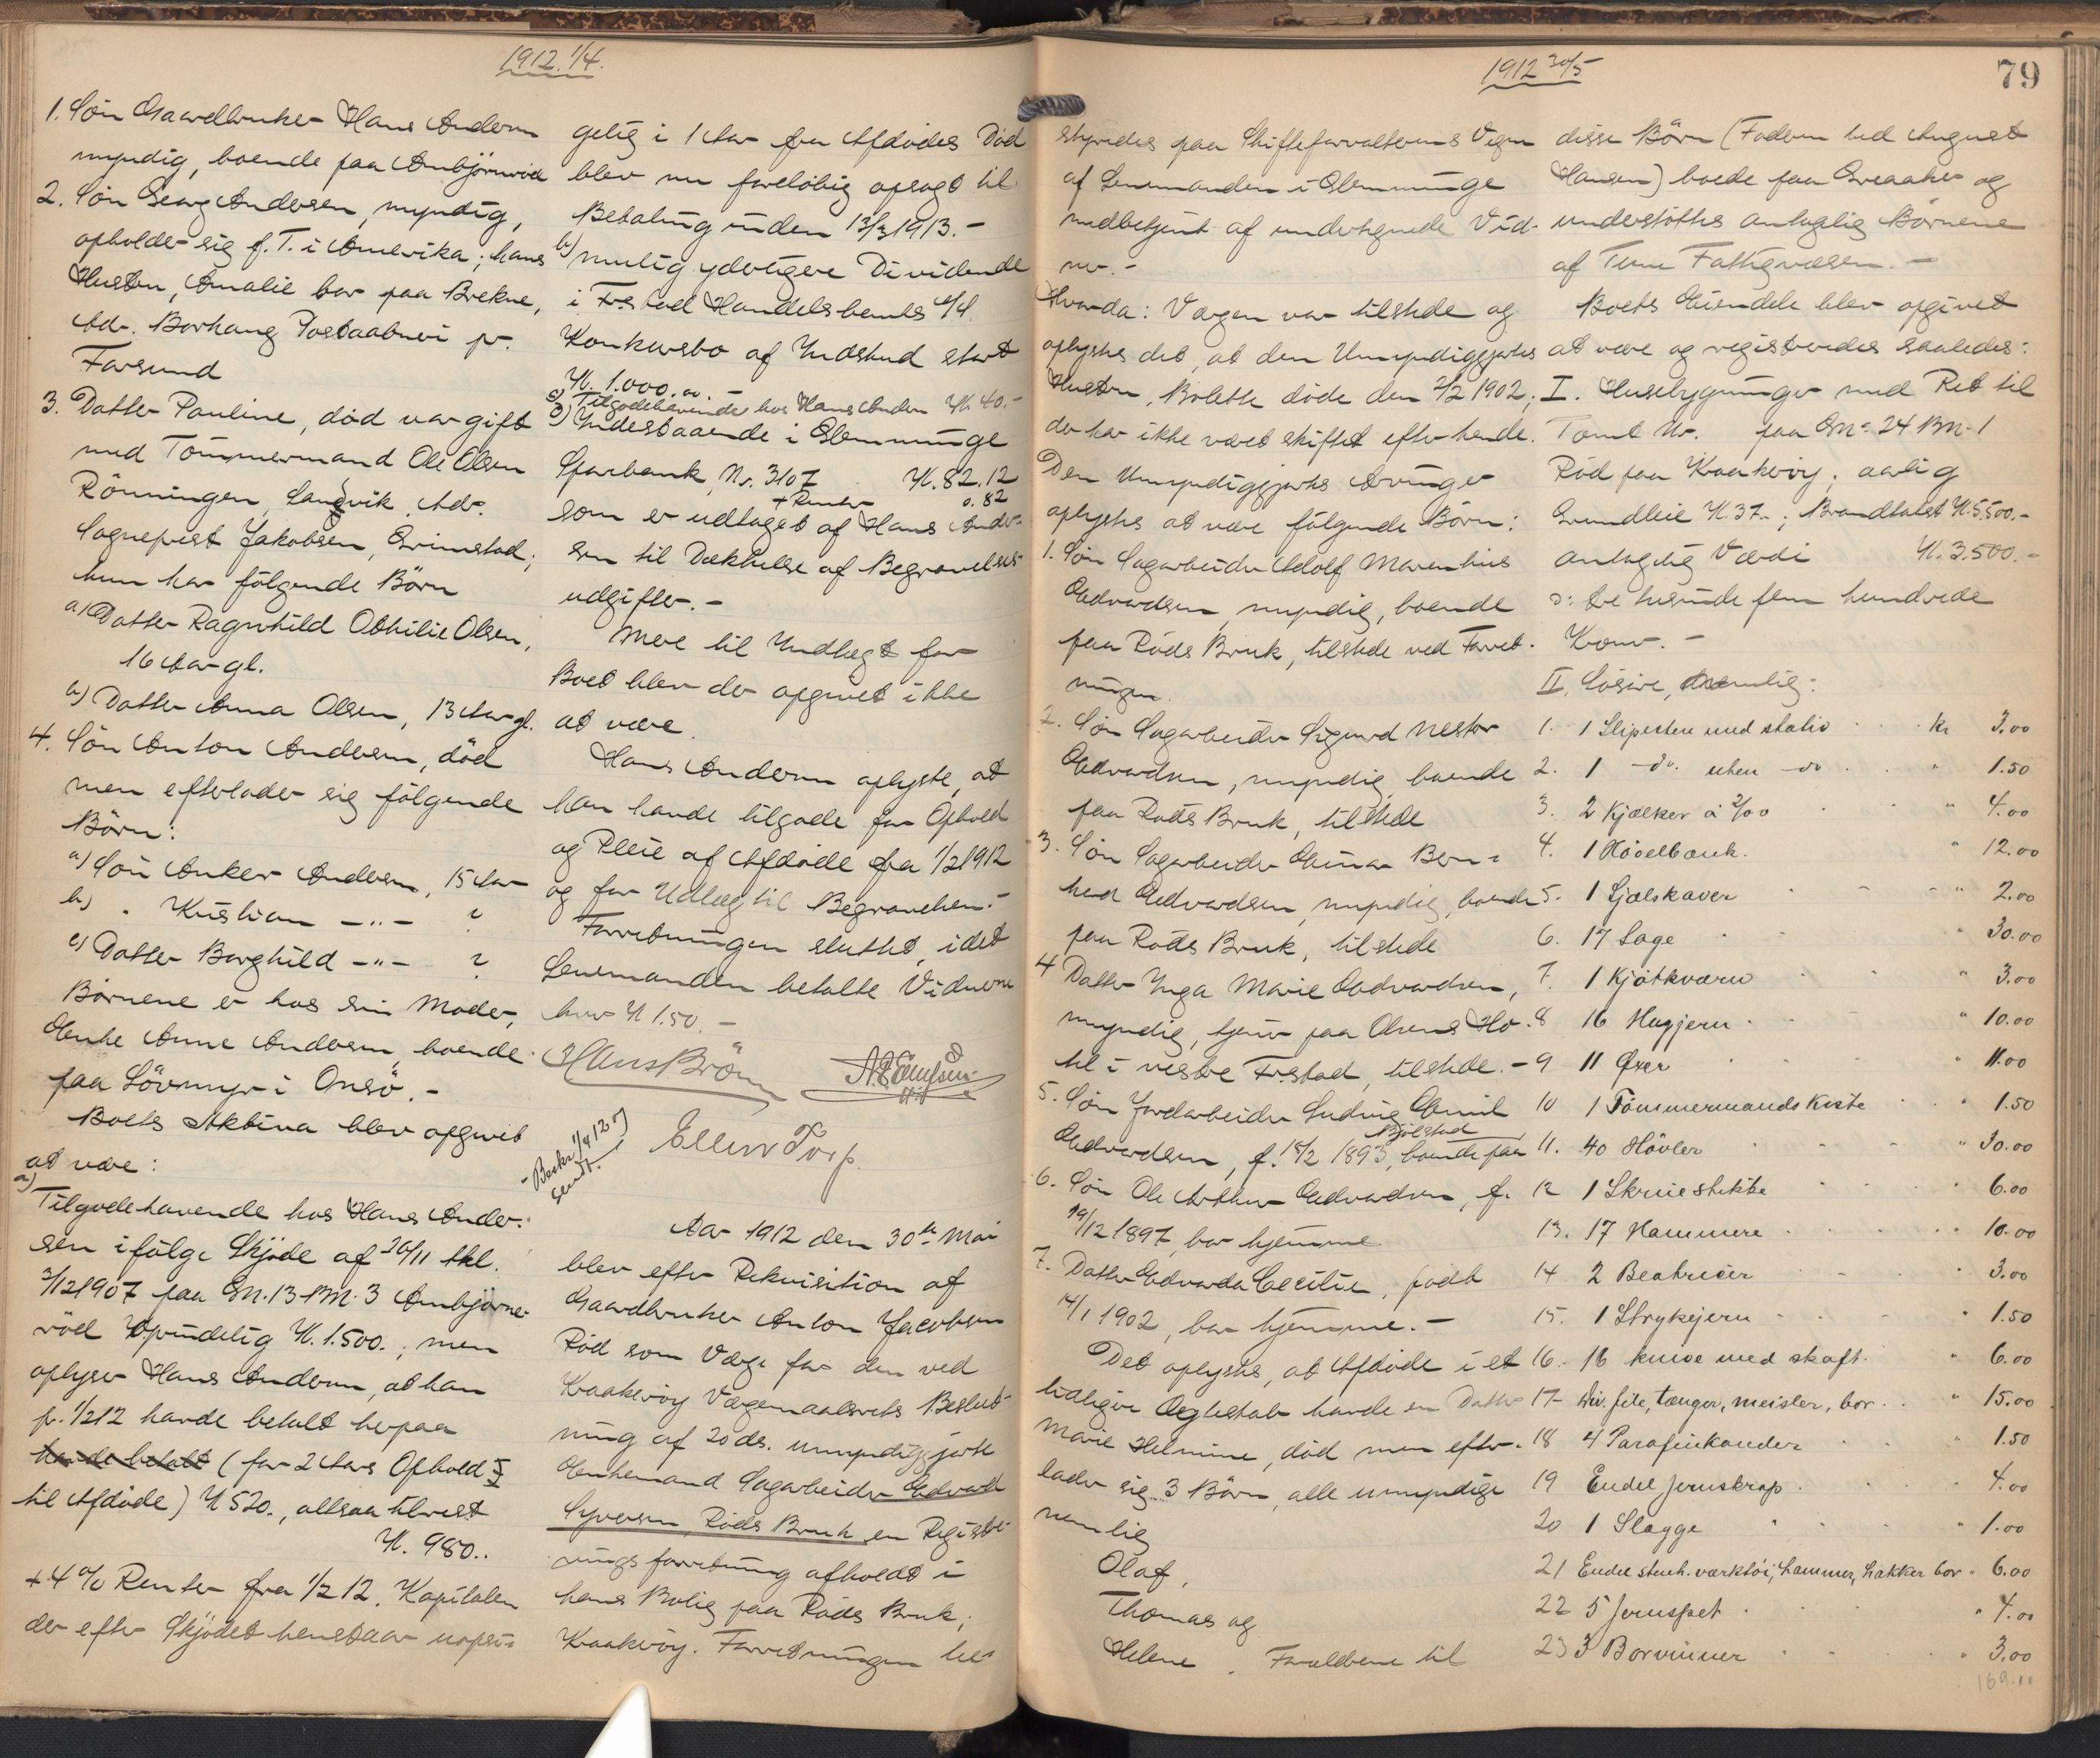 1912. 1/4.
1. Søn Gaardbruker Hans Andersen
myndig, boende paa Ambjörnröd
2. Søn Georg Andersen, myndig,
opholder sig f. T. i Amerika; hans
Hustru, Amalie bor paa Brekne,
Adr. Borhaug Postaabneri pr.
Farsund
3. Datter Pauline, död var gift
med Tömmermand Ole Olsen
Rönningen, Landvik, Adr.
Sogneprest Jakobsen, Grimstad;
hun har fölgende Börn
a) Datter Ragnhild Othilie Olsen,
16 Aar gl.
b) Datter Anna Olsen, 13 Aar gl.
4. Sön Anton Andersen, död
men efterlader sig fölgende
Börn:
a) Sön Anker Andersen, 15 Aar
b) " Kristian — " — ?
c) Datter Borghild — " — ?
Börnene er hos sin Moder,
Enke Anne Andersen, boende
paa Lövmyr i Onsö. -
Boets Aktiva blev opgivet
at være:
a)
Tilgodehavende hos Hans Ander-
sen ifölge Skjöde af 26/11 tkl.
3/12 1907 paa Gn. 13 Bn. 3 Ambjörns-
röd oprindelig K. 1.500.; men
oplyser Hans Andersen, at han
pr. 1/2 12 havde betalt herpaa
havde betalt (for 2 Aars Ophold
til Afdöde) K 520., altsaa tilrest
K. 980..
+ 4 % Renter fra 1/2 12. Kapitalen
der efter Skjödet henstaar uopsi-
gelig i 1 Aar fra Afdödes Död
blev nu forelöbig opsagt til
Betaling inden 13/3 1913. -
b) mulig yderligere Dividende
i Fr.stad Handelsbanks
Konkursbo af Indskud stort
K. 1.000. -
c) Tilgodehavende hos Hans Andersen K 40. -
3) Indestaaende i Glemminge
Sparbank, Nr. 3107 K. 82.12
+ Renter 0.82
som er udtaget af Hans Ander-
sen til Dækkelse af Begravelses-
udgifter. -
Mere til Indtægt for
Boet blev der opgivet ikke
at være.
Hans Andersen oplyste, at
han havde tilgode for Ophold
og Pleie af Afdöde fra 1/2 1912
og for Udlæg til Begravelsen. -
Forretningen sluttet, idet
Lensmanden betalte Vidnerne
hver K 1.50. -
Hans Bröm
Ellen Torp.
Beskr. 1/4 12
sendt.
Aar 1912 den 30te Mai
blev efter Rekvisition af
Gaardbruker Anton Jacobsen
Röd som Værge for den ved
Kraakeröy Værgemaalsrets Beslut-
ning af 20 ds. umyndiggjorte
Enkemand Sagarbeider Edvard
Syversen, Röds Bruk en Registre-
ringsforretning afholdt i
hans Bolig paa Röds Bruk,
Kraakeröy. Forretningen be-
1912 30/5
79
styredes paa Skifteforvalterens Vegne
af Lensmanden i Glemminge
medbetjent af undertegnede Vid-
ner. -
Hvorda: Værgen var tilstede og
oplystes det, at den Umyndiggjortes
Hustru, Bolette döde den 2/2 1902;
der har ikke været skiftet efter hende.
Den Umyndiggjortes Arvinger
oplystes at være fölgende Börn:
1. Sön Sagarbeider Adolf Marenhius
Edvardsen, myndig, boende
paa Röds Bruk, tilstede ved Forret-
ningen.
2. Sön Sagarbeider Sigurd Nestor
Edvardsen, myndig, boende
paa Röds Bruk, tilstede
3. Sön Sagarbeider Einar Bern-
hard Edvardsen, myndig, boende
paa Röds Bruk, tilstede
4 Datter Inga Marie Edvardsen,
myndig, tjener paa Olsens Ho-
tel i vestre Fr.stad, tilstede. -
5. Sön Jordarbeider Ludvig Emil
Edvardsen, f. 18/2 1893, boende paa
Bjölstad
6. Sön Ole Arthur Edvardsen, f.
19/12 1897, bor hjemme
7. Datter Edvarda Cecilie, födt
14/1 1902, bor hjemme. -
Det oplystes, at Afdöde i et
tidligere Ægteskab havde en Datter
Marie Helmine, död men efter-
lader sig 3 Börn, alle umyndige
nemlig
Olaf,
Thomas og
Helene. Forældrene til
disse Börn (Faderen hed August
Hansen) boede paa Greaaker og
understöttes antagelig Börnene
af Tune Fattigvæsen. -
Boets Eiendele blev opgivet
at være og registreredes saaledes:
I. Husebygninger med Ret til
Tomt Nr. paa Gn. 24 Bn. 1
Röd paa Kraakeröy; aarlig
Grundleie K. 37.-; Brandtakst K. 5.500.-
antagelig Værdi K. 3.500.-
ɔ: tre tusinde fem hundrede
Kroner. -
II. Lösöre, nemlig:
1. 1 Slipesten med stativ kr 3.00
2. 1 —do. uten —do " 1.50
3. 2 Kjælker à 2/00 " 4.00
4. 1 Høvelbænk. " 12.00
5. 1 Sjælskaver " 2.00
6. 17 Sage " 30.00
7. 1 Kjøtkværn " 3.00
8 16 Hugjern " 10.00
9 11 Øxer " 11.00
10 1 Tömmermands Kiste " 1.50
11. 40 Hövler " 30.00
12 1 Skruestikke " 6.00
13. 17 Hammere " 10.00
14 2 Beatricer " 3.00
15. 1 Strykejern " 1.50
16. 16 knive med skaft. " 6.00
17 Div. file, tænger, meisler, bor. " 15.00
18 4 Parafinkander " 1.50
19 Endel Jernskrap " 4.00
20 1 Slægge " 1.00
21 Endel stenh. værktöi, hammer, hakker bor " 6.00
22 5 Jernspet " 4.00
23 3 Borvinner " 3.00
169.00